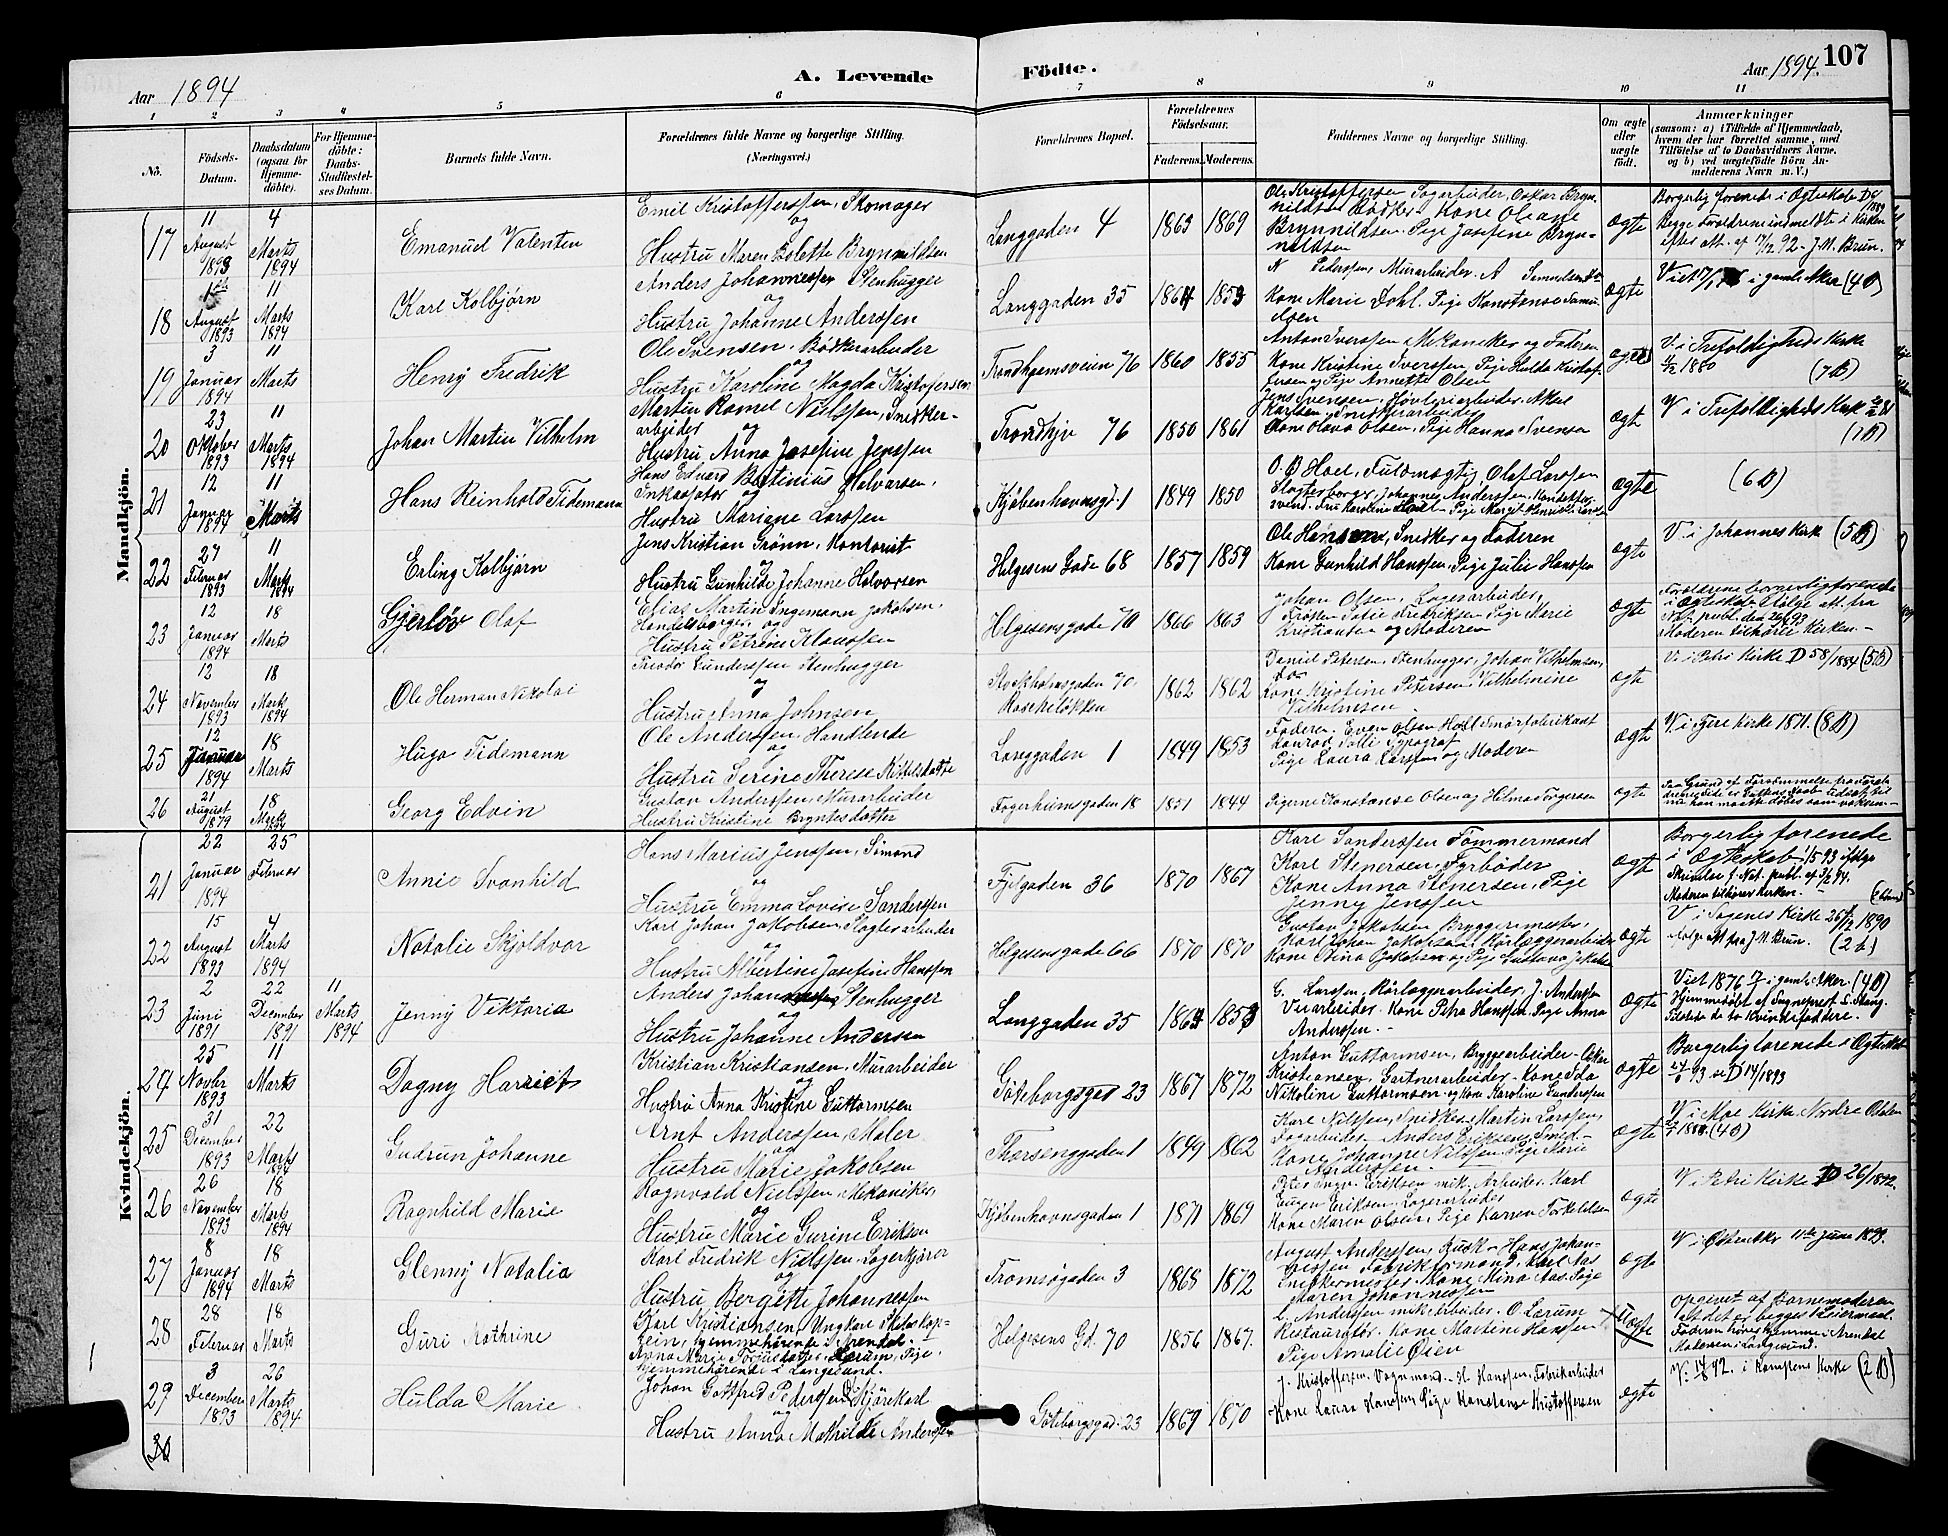 107
Aar 1894
A. Levende Födte.
Aar 1894.
1 2 3 4 5 6 7 8 9 10 11
No.
Födsels-Datum.
Daabsdatum (ogsaa for Hjemme-döbte).
For Hjemme-döbte: Daabs-Stadfæstel-ses Datum.
Barnets fulde Navn.
Forældrenes fulde Navne og borgerlige Stilling. (Næringsvei.)
Forældrenes Bopæl.
Forældrenes Födselsaar.
Faderens. Moderens.
Faddernes Navne og borgerlige Stilling.
Om ægte eller uægte födt.
Anmærkninger
(saasom: a) i Tilfælde af Hjemmedaab, hvem der har forrettet samme, med Tilföielse af to Daabsvidners Navne, og b) ved uægtefödte Börn An-melderens Navn m. V.)
Mandkjön.
17
11 August 1893
4 Marts 1894
Emanuel Valentin
Emil Kristofferssen, Skomager
og
Hustru Maren Bolette Brynnildsen
Langgaden 4
1863 1869
Ole Kristoffersen Sagarbeider, Oskar Bryn-
nildsen Bødker, Kone Oleane
Brynnildsen, Pige Josefine Bryn-
nildsen
ægte
Borgerlig forenede i Ægteskab
Begge Forældrene indmeldte i Kirken
efter Att. af 7/2 92 - J. M. Brun.
18
August 1893
11 Marts 1894
Karl Kolbjørn
Anders Johannessen Stenhugger
og
Hustru Johanne Anderssen
Langgaden 35
1864 1853
Pederssen, Murarbeider. A
Kone Marie Dohl. Pige Konstanse Samu-
elsen
ægte
i gamle Aker (4 B)
19
3 Januar 1894
11 Marts
Henry Fredrik
Ole Svensen. Bødkerarbeider
og
Hustru Karoline Magda Kristofersen
Trondhjemsveien 76
1860 1855
Anton Iverssen Mekaniker og Faderen
Kone Kristine Iverssen, Pige Hulda Kristof-
fersen og Pige Annette Olsen
ægte
V. i Trefoldigheds Kirke
1880 (7 B)
20
23 Oktober 1893
11 Marts 1894
Johan Martin Vilhelm
Martin Romel Nielssen, Snedker-
arbeider og
Hustru Anna Josefine Jenssen
Trondhjv 76
1850 1861
Jens Svensen, Høvleriarbeider. Aksel
Karlsen, Snedkerarbeider
Kone Olava Olsen, Pige Hanna Svensen
ægt
V i Trefoldigheds Kirk
21
12 Januar 1894
11 Marts
Hans Reinhold Tidemann
Hans Edvard Bertinius Halvorsen,
Inkassator og
Hustru Mariane Larssen
Kjøbenhavnsgd. 1
1849 1850
O. B Hoel, Fuldmægtig, Olaf Larssen
Slagterborger, Johannes Anderssen, Konduktør
ægte
(6 B)
22
27 Februar 1893
11 Marts 1894
Erling Kolbjørn
Jens Kristian Grønn, Kontorist
og
Hustru Gunhilde Johanne Halvorsen
Helgesens Gade 68
1857 1859
Ole Hansen, Snedker og Faderen
Kone Gunhild Hanssen, Pige Julie Hanssen
ægte
V. i Johannes Kirk (5 B)
23
12 Januar 1894
18 Marts
Gjerløv Olaf
Elias Martin Ingemann Jakobsen,
Handelsborger og
Hustru Petrine Klaussen
Helgesensgade 70
1866 1863
Johan Olsen, Lagerarbeider,
Frøken Sofie Fredriksen Pige Marie
Kristiansen og Moderen
ægte
Forældrene borgerlig forenede
i Ægteskab ifølge att. fra
Not. publ. den
Moderen tilhører Kirken.-
24
12 November 1893
18 Marts 1894
Ole Herman Nikolai
Theodor Gunderssen Stenhugger
og
Hustru Anna Johnsen
Stockholmsgaden 70.
Rosekiløkken
1862 1862
Daniel Petersen, Stenhugger, Johan Vilhelmsen,
Kone Kristine Petersen, Vilhelmine
Vilhelmsen
ægte
V. i Petri Kirke D 58/1884 (5 B)
25
12 Januar 1894
18 Marts
Hugo Tidemann
Ole Anderssen, Handlende
og
Hustru Serine Therese Kittelsdatter
Langgaden 1
1849 1853
Faderen, Even Olsen Hoel Smørfabrikant
Konrad Tolle Typograf
Pige Laura Larssen og Moderen
ægte
V. i Kirke 1871. (8 B)
26
21 August 1879
18 Marts 1894
Georg Edvin
Gustav Anderssen, Murarbeider
Hustru Kristine Bryntesdatter
Fagerheimsgaden 18
1844
Pigerne Konstanse Olsen og Helma Fagersen
ægte
Paa Grund af Forsømmelse fra Foræl-
Kvindekjön.
21
22 Januar 1894
25 Februar
Annie Svanhild
Hans Marius Jenssen, Sömand
og
Hustru Emma Lovise Sanderssen
Fjelgaden 36
1870 1867
Karl Sanderssen Tømmermand
Karl Stenersen, Fyrbøder
Kone Anna Stenersen, Pige
Jenny Jenssen
ægte
Borgerlig forenede
i Ægteskab 1/5 93 ifølge
Skrivelse f. Not. publ. af 3/2 94.
Moderen tilhører Kirken.
22
15 August 1893
4 Marts 1894
Natalie Skjoldvor
Karl Johan Jakobsen Slagterarbeider
og
Hustru Albertine Josefine Hanssen
Helgesensgade 66
1870 1870
Gustav Jakobsen, Bryggerimester,
Karl Johan Jakobsen, Rørlæggerarbeider
Kone Stina Jakobsen og Pige Gustava Jakobsen
ægte
V i Sagenes Kirke 1890
ifølge Att fra J. M. Brun. (2 b)
23
2 Juni 1891
22 December 1891
11 Marts 1894
Jenny Viktoria
Anders Johannessen Stenhugger
og
Hustru Johanne Andersen
Langgaden 35
1864 1853
G. Larssen, Rørlæggerarbeider, J. Anderssen
Veiarbeider. Kone Petra Hanssen, Pige Anna
Anderssen. -
ægte
Viet 1876 i gamle Aker. (4 B)
Hjemmedøbt af Sogneprest S. Stang.
Tilstede de to Kvindefaddere.
24
25 Novbr 1893
11 Marts
Dagny Harriet
Kristian Kristiansen, Murarbeider
og
Hustru Anna Kristine Guttormsen
Göteborgsgad 23
1867 1872
Anton Guttormsen, Bryggearbeider - Oskar
Kristiansen, Gartnerarbeider. Kone Ida
Nikoline Guttormsen og Kone Karoline Gunderssen
ægte
Borgerlig forenede i Ægtesk
93 se D 14/1893
25
31 December 1893
22 Marts 1894
Gudrun Johanne
Arnt Anderssen, Maler
og
Hustru Marie Jakobsen
Thorsenggaden 1
1849 1862
Karl Nilssen, Snedker, Martin Larssen,
Sagarbeider, Anders Eriksen, Smed -
Kone Johanne Nilssen, Pige Marie
Anderssen. -
ægte
V. i Moe Kirke Nordre Odalen
(4 B)
26
26 November 1893
18 Marts 1894
Ragnhild Marie
Ragnvald Nielssen, Mekaniker,
og
Hustru Marie Gurine Eriksen
Kjøbenhavnsgaden 1
1871 1869
Peter Eriksen mek. Arbeider. Karl
Eugen Eriksen, Lagerarbeider
Kone Maren Olsen, Pige Karren Torkelsen
ægte
V. i Petri Kirke D 26/1892.
27
8 Januar 1894
18 Marts
Glenny Natalia
Karl Fredrik Nielssen, Lagerkjører
og
Hustru Bergitte Johannessen
Tromsøgaden 3
1868 1872
August Anderssen, Kusk - Hans Johan-
nessen Fabrikformand, Karl Aas
Snedkermester, Kone Mina Aas. Pige
Maren Johannessen
ægte
V. i Østre Aker 11te Juni 1893.
28
28 Februar
18 Marts
Guri Kathrine
Karl Kristiansen, Ungkarl Skibstøm-
, hjemmehørende i Arendal.
Anna Marie Torjusdatter Lerum, Pige,
hjemmehørende i Langesund.
Helgesens Gd. 70
1856 1867.
L. Anderssen mek Arbeider. O. Lerum
Restauratør. Kone Martine Hanssen
Pige Amalie Øien
Uægte
Opgivet af Barnemoderen
at det er begges 1. Leiermaal.
Faderen hører hjemme i Arendal
Moderen i Langesund.
29
3 December 1893
26 Marts 1894
Hulda Marie
Johan Gottfred Pederssen, Kjørekarl
og
Hustru Anna Mathilde Anderssen
Göteborgsgad. 23
1869 1870
J. Kristoffersen Vognmand - H. Hanssen, Fabrikarbeider
Kone Laura Hanssen, Pige Konstanse Kristoffersen
ægte
V. 92. i Kampens Kirke (2 B)
30